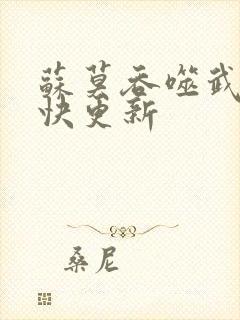 蘇莫吞噬武
快更新
桑尼